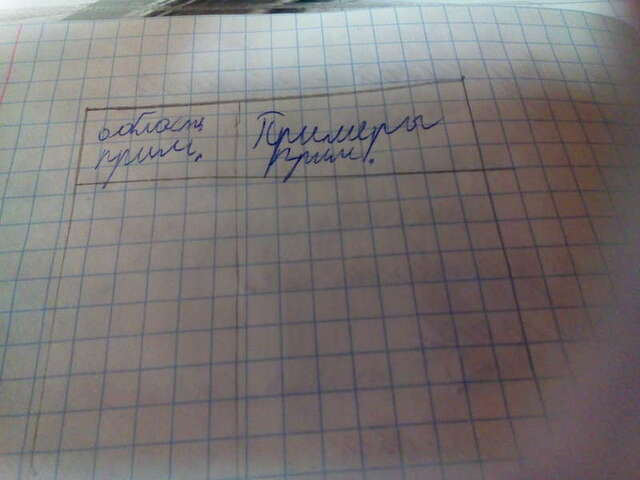 область
прим.
Примеры
прим.